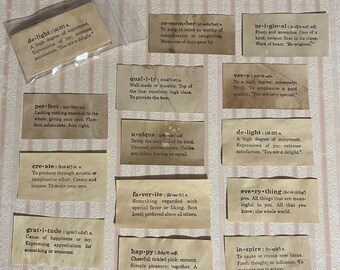 de•light:
A high degree of enjoyment.
Expression of joy, extreme
satisfaction. "You are a delight."
re•mem•ber:
To keep in mind as worthy of
consideration or recognition.
Memories of days gone by.
o•rig•i•nal:
Fresh and inventive. One of a
kind; unusual. First in its class.
Work of heart. "Be original."
qual•i•ty:
Well-made or durable. Top of
the line; excellent; high class.
To provide the best.
ver•y:
To a high degree, extremely.
Truth. To emphasize a good
quality. "You are very special."
per•fect:
Lacking nothing essential to the
whole; giving your best.
Just right.
u•nique:
Being the only one of its kind.
Unusual; extraordinary. Unlike
any other; having no equal.
de•light:
A high degree of enjoyment.
Expression of joy, extreme
satisfaction. "You are a delight."
cre•ate:
To produce through artistic or
imaginative effort. Create and
inspire. To make your own.
fa•vor•ite:
Something regarded with
special favor or liking. Best
loved; preferred above all others.
eve•ry•thing:
All things that are
meaningful to you. All that you
know; the whole world.
grat•i•tude:
Cause of happiness or joy.
Expressing appreciation for
something or someone.
hap•py:
Cheerful; tickled pink; content.
Simple pleasure; together. A
in•spire:
To cause or create new ideas.
Fresh thought; to influence.